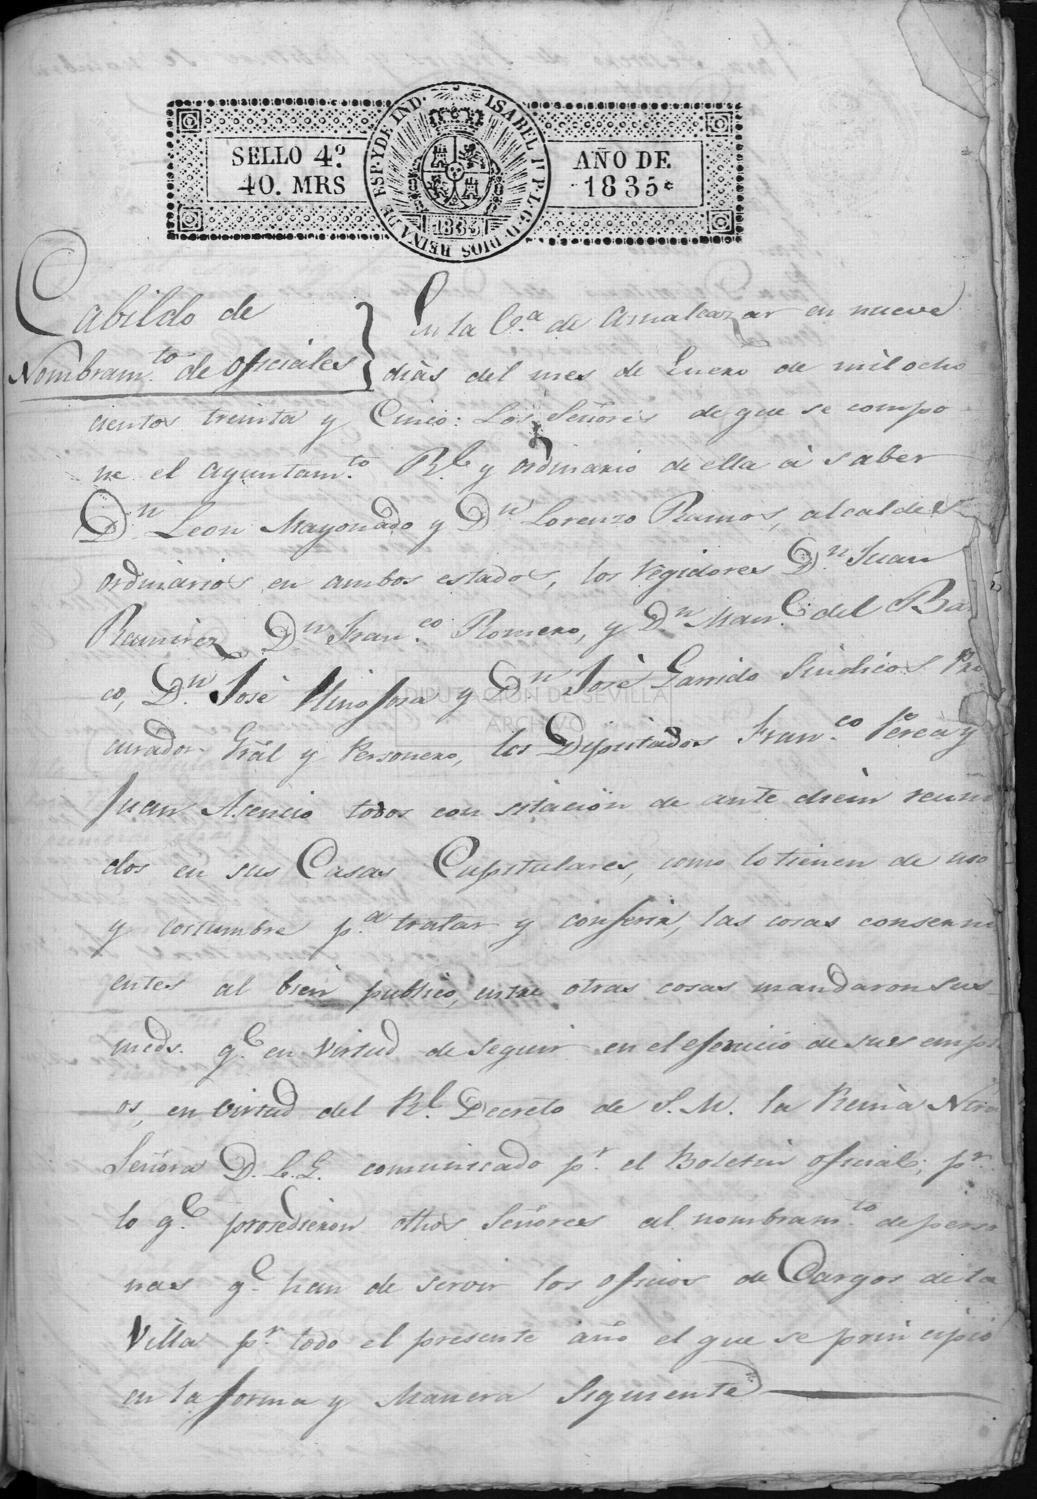 SELLO 4.º
40. MRS
ISABEL II P. L. G. D. DIOS REINA DE ESP. Y DE IND.
1835
AÑO DE
1835
Cabildo de
Nombram.to de oficiales
En la V.a de Almalcazar en nueve
dias del mes de Enero de mil ocho
cientos treinta y Cinco: Los Señores de que se compo
ne el ayuntam.to R.l y ordinario de ella à saber
D.n Leon Mayorado y D.n Lorenzo Ramos, alcaldes
ordinarios en ambos estados, los regidores D.n Juan
Ramirez, D.n Fran.co Romero, y D.n Man.l del Bar
co, D.n José Hinojosa y D.n José Garrido Sindicos Pro
curador Gral y Personero, los Diputados Fran.co Perea y
Juan Asencio todos con sitación de ante diem reuni
dos en sus Casas Capitulares, como lo tienen de uso
y costumbre p.a tratar y conferir, las cosas conserni
entes al bien publico, entre otras cosas mandaron sus
meds. q.e en virtud de seguir en el ejersicio de sus emple
os, en virtud del R.l Decreto de S. M. la Reina Ntra
Señora D. L. G. comunicado p.r el Boletin oficial; p.r
lo q.e prosedieron dthos Señores al nombram.to de perso
nas q.e han de servir los oficios de Cargos de la
Villa p.r todo el presente año el que se prinsipio
en la forma y Manera Siguiente
DIPUTACIÓN DE SEVILLA
ARCHIVO